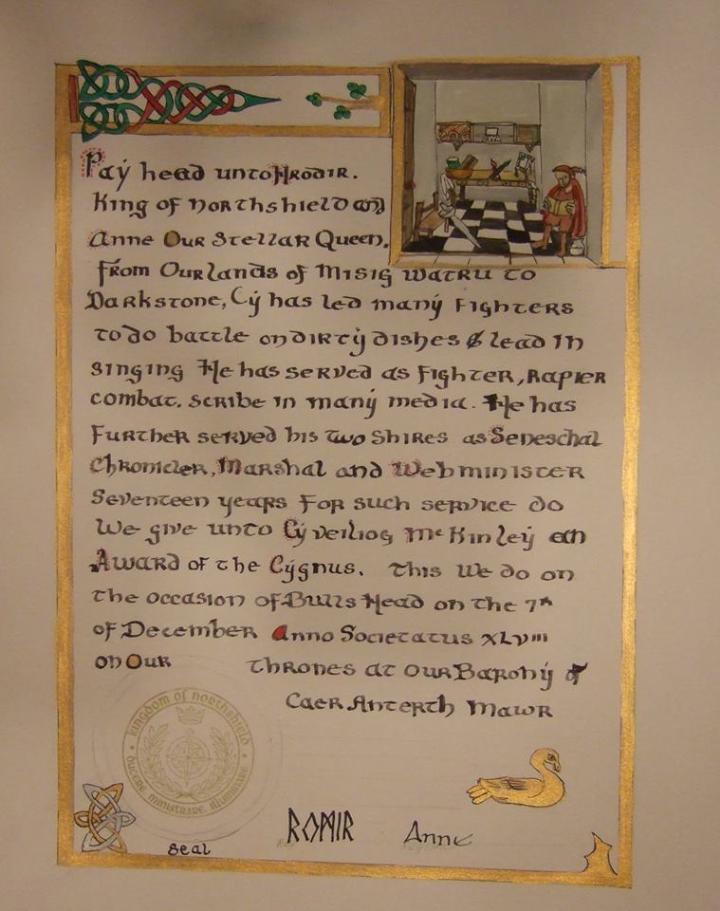 Pay head unto Hrodir.
King of Northshield and
Anne Our Stellar Queen.
From Our lands of Misig Watru to
Darkstone, Cy has led many Fighters
to do battle on dirty dishes & lead in
singing He has served as Fighter, Rapier
combat. scribe in many media. He has
Further served his two Shires as Seneschal
Chronicler, Marshal and Webminister
Seventeen years For such service do
We give unto Cyveiliog McKinley an
Award of the Cygnus. This We do on
the occasion of Bulls Head on the 7th
of December Anno Societatus XLVIII
on Our thrones at our Barony of
Caer Anterth Mawr
kingdom of northshield
ducere, ministrare, illuminare
seal
Anne